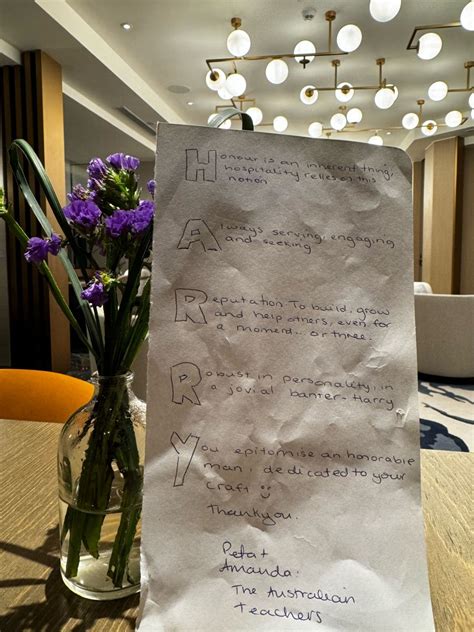 Honour is an inherent thing,
hospitality relies on this
notion
Always serving, engaging
and seeking
Reputation To build, grow
and help others, even for
a moment... or three.
Robust in personality, in
a jovial banter-Harry
You epitomise an honorable
man, dedicated to your
craft
Thankyou.
Peta +
Amanda.
The Australian
Teachers